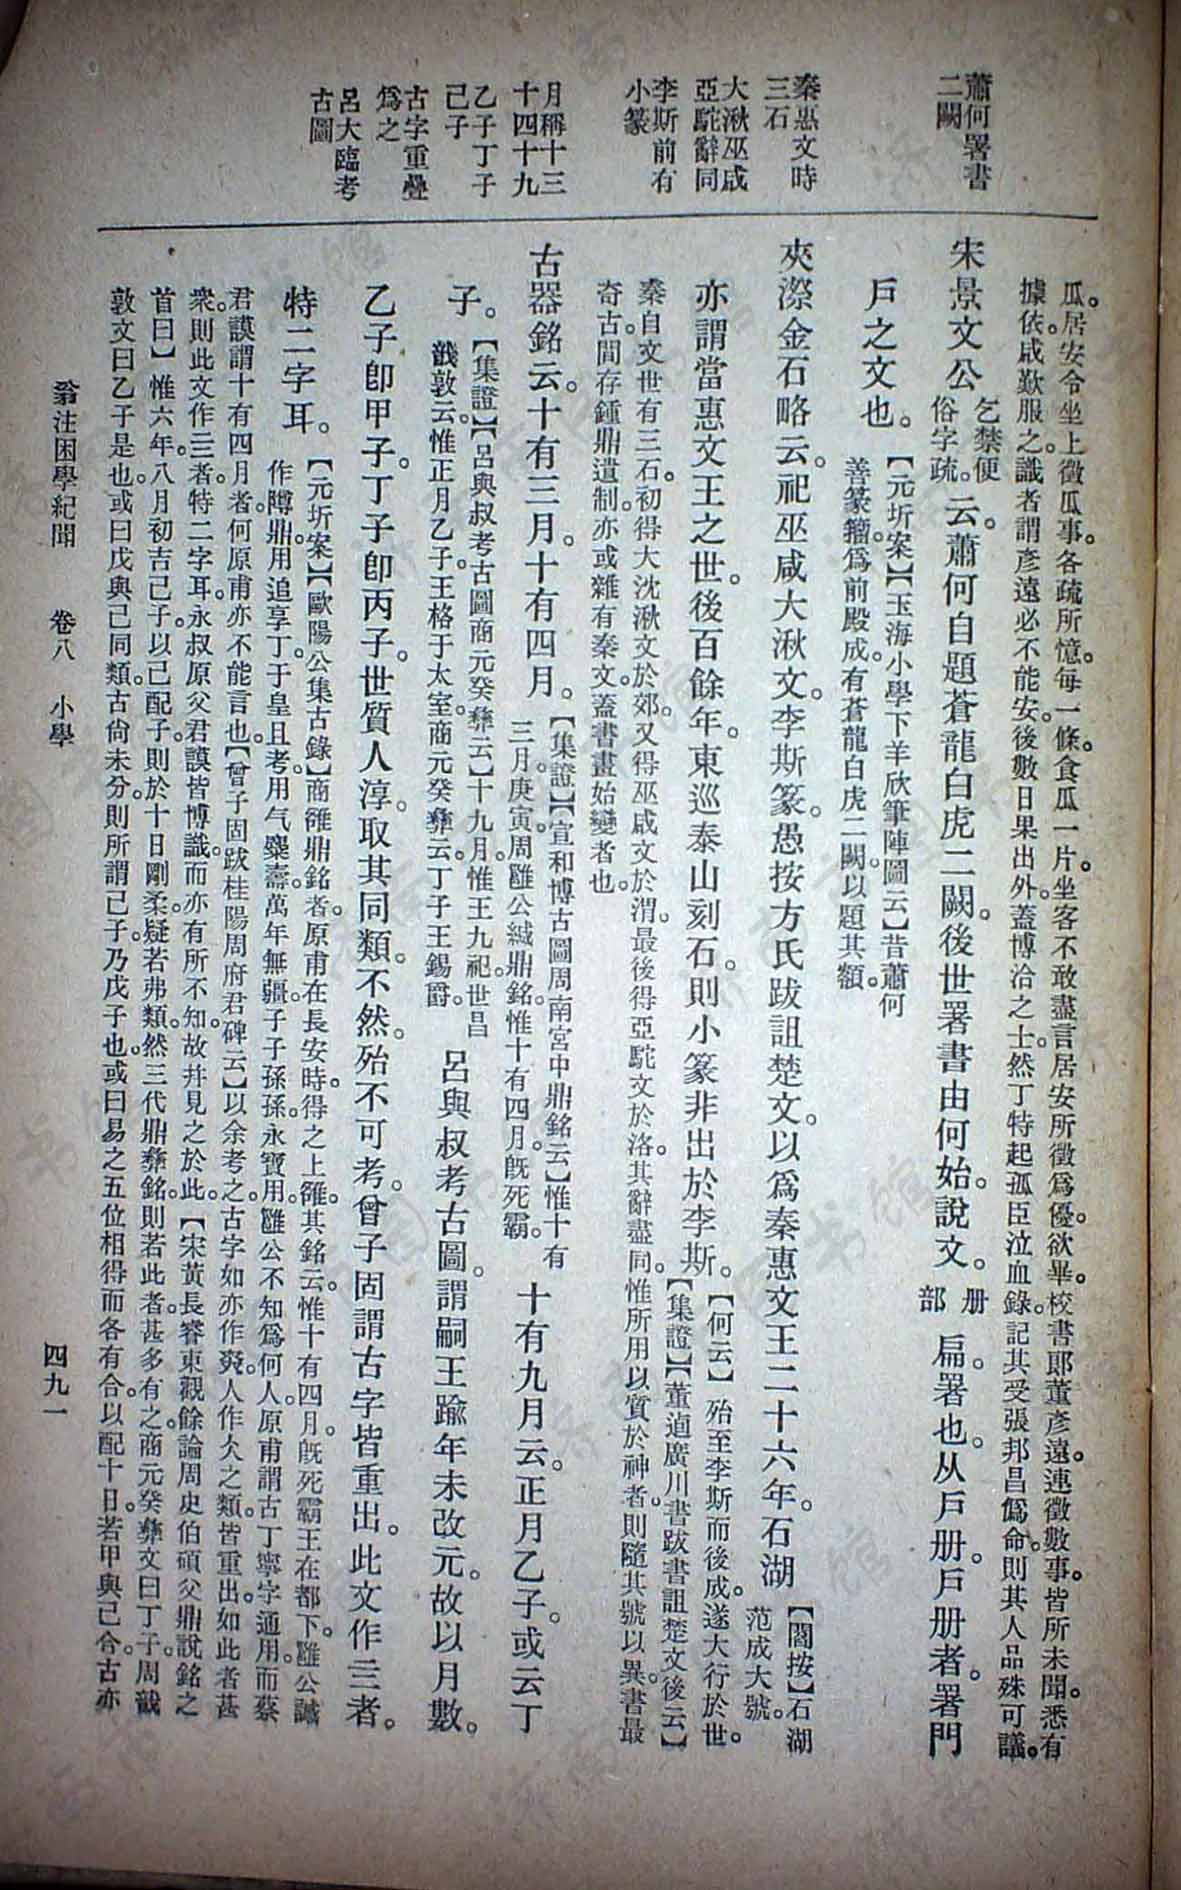 蕭何署書
二闕
秦惠文時
三石
大湫巫咸
亞駝辭同
李斯前有
小篆
月稱十三
十四十九
乙子丁子
己子
古字重疊
爲之
呂大臨考
古圖
瓜。居安令坐上徵瓜事。各疏所憶。每一條。食瓜一片。坐客不敢盡言。居安所徵爲優。欲畢。校書郎董彥遠。連徵數事。皆所未聞。悉有
據依。咸歎服之。識者謂彥遠必不能安。後數日果出外。蓋博洽之士。然丁特起孤臣泣血錄。記其受張邦昌僞命。則其人品殊可議。
宋景文公乞禁便俗字疏。云。蕭何自題蒼龍白虎二闕。後世署書由何始。說文。册部扁。署也。从戶册。戶册者。署門
戶之文也。【元圻案】【玉海小學下羊欣筆陣圖云】昔蕭何善篆籀。爲前殿成。有蒼龍白虎二闕。以題其額。
夾漈金石略云。祀巫咸大湫文。李斯篆。愚按方氏跋詛楚文。以爲秦惠文王二十六年。石湖【閻按】石湖范成大號。
亦謂當惠文王之世。後百餘年。東巡泰山刻石。則小篆非出於李斯。【何云】殆至李斯而後成。遂大行於世。【集證】【董逌廣川書跋書詛楚文後云】
秦自文世有三石。初得大沈湫文於郊。又得巫咸文於渭。最後得亞駝文於洛。其辭盡同。惟所用以質於神者。則隨其號以異。書最
奇古。間存鍾鼎遺制。亦或雜有秦文。蓋書畫始變者也。
古器銘云。十有三月。十有四月。【集證】【宣和博古圖周南宮中鼎銘云】惟十有三月。庚寅。周雝公緘鼎銘。惟十有四月。旣死霸。十有九月云。正月乙子。或云丁
子。【集證】【呂與叔考古圖商元癸彝云】十九月。惟王九祀。世昌 敦云。惟正月乙子。王格于太室。商元癸彝云。丁子王錫爵。呂與叔考古圖。謂嗣王踰年未改元。故以月數。
乙子卽甲子。丁子卽丙子。世質人淳。取其同類。不然。殆不可考。曾子固謂古字皆重出。此文作亖者。
特二字耳。【元圻案】【歐陽公集古錄】商雒鼎銘者。原甫在長安時。得之上雒。其銘云。惟十有四月。旣死霸。王在都下。雝公緘作障鼎。用追享丁。于皇且考。用气麋壽。萬年無疆。子子孫孫。永寶用。雝公不知爲何人。原甫謂古丁寧字通用。而蔡
君謨謂十有四月者。何原甫亦不能言也。【曾子固跋桂陽周府君碑云】以余考之。古字如亦作 。人作 之類。皆重出。如此者甚
衆。則此文作亖者。特二字耳。永叔原父君謨皆博識。而亦有所不知。故幷見之於此。【宋黃長睿東觀餘論周史伯碩父鼎說銘之
首曰】惟六年。八月初吉己子。以己配子。則於十日剛柔。疑若弗類。然三代鼎彝銘。則若此者。甚多有之。商元癸彝文曰丁子。周
敦文曰乙子是也。或曰戊與己同類。古尙未分。則所謂己子。乃戊子也。或曰易之五位相得而各有合。以配十日。若甲與己合。古亦
翁注困學紀聞　卷八　小學
四九一